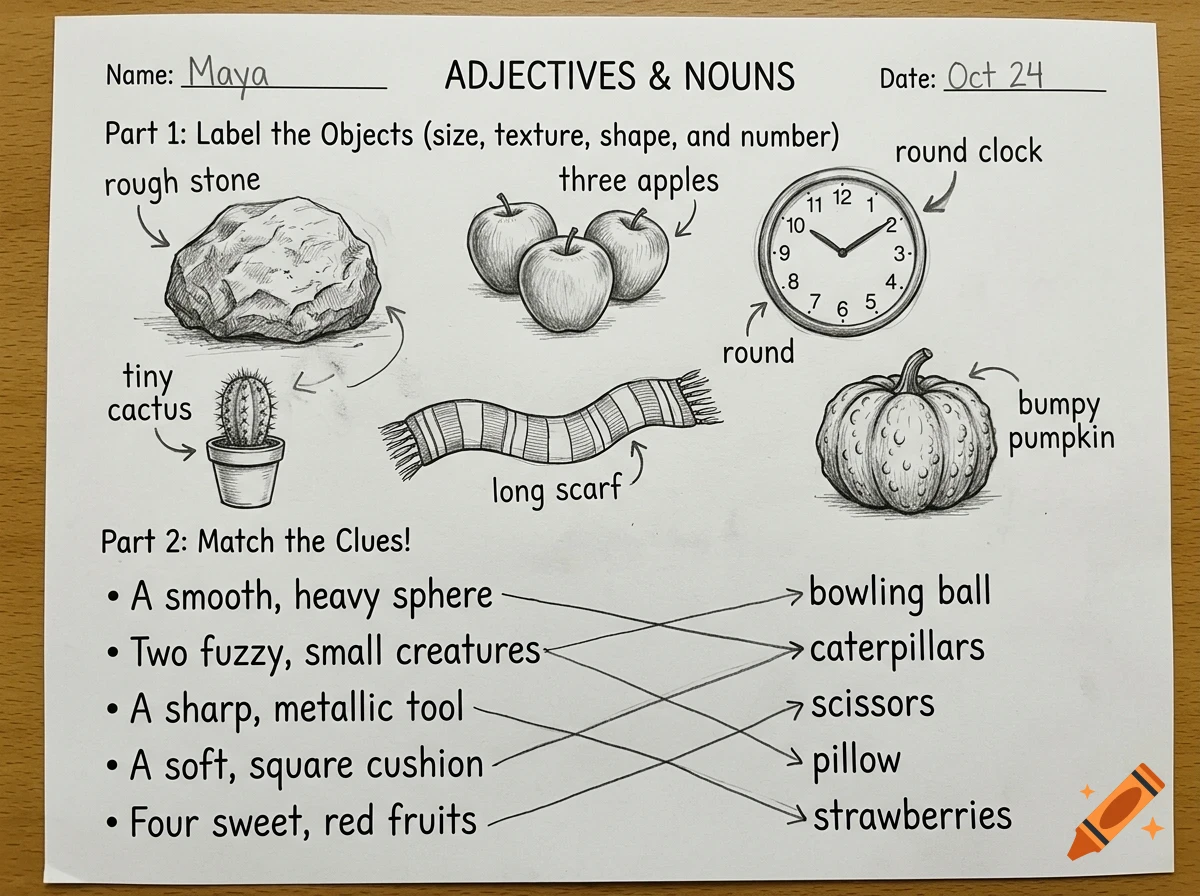 Name: Maya
ADJECTIVES & NOUNS
Date: Oct 24
Part 1: Label the Objects (size, texture, shape, and number)
rough stone
three apples
round clock
11 12 1
10 2
9 3
8 4
7 6 5
round
tiny
cactus
long scarf
bumpy
pumpkin
Part 2: Match the Clues!
• A smooth, heavy sphere
bowling ball
• Two fuzzy, small creatures
caterpillars
• A sharp, metallic tool
scissors
• A soft, square cushion
pillow
• Four sweet, red fruits
strawberries